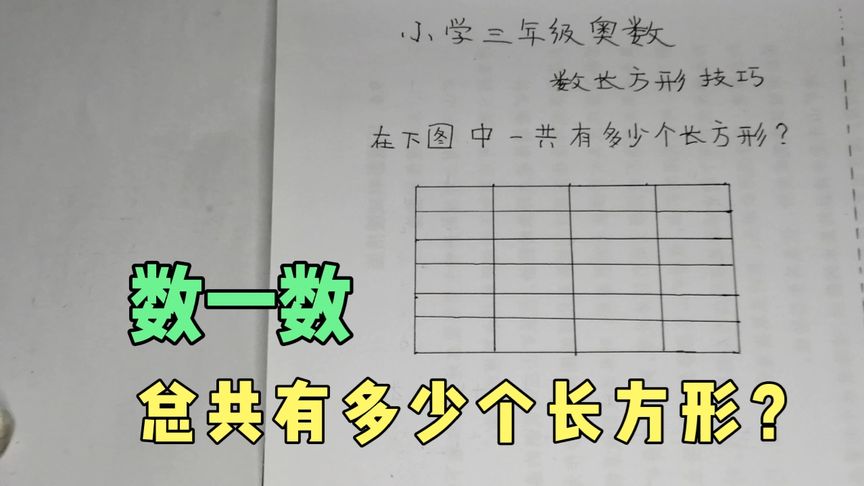 小学三年级奥数
数长方形技巧
在下图中一共有多少个长方形？
数一数
总共有多少个长方形？